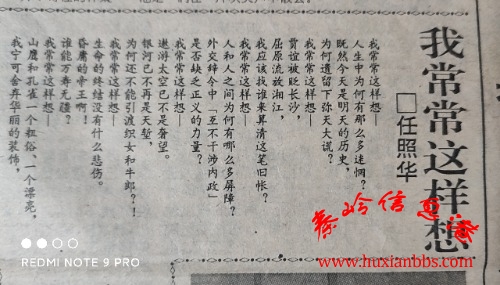 我常常这样想
□任照华
我常常这样想——
人生中为何有那么多迷惘?
既然今天是明天的历史,
为何遗留下弥天大谎?
我常常这样想——
屈原流放湘江,
贾谊被贬长沙,
我应该找谁来算清这笔旧帐?
我常常这样想——
人和人之间为何有哪么多屏障?
外交辞令中「互不干涉内政」
是否缺乏正义的力量?
我常常这样想——
遨游太空已不是奢望。
银河已不再是天堑,
为何还不能引渡织女和牛郎?!
我常常这样想——
生命的终结没有什么悲伤。
昏庸的帝王啊!
谁能万寿无疆?
我常常这样想——
山鹰和孔雀一个粗俗、一个漂亮,
我宁可舍弃华丽的装饰,
秦岭信息港
www.huxianbbs.com
REDMI NOTE 9 PRO